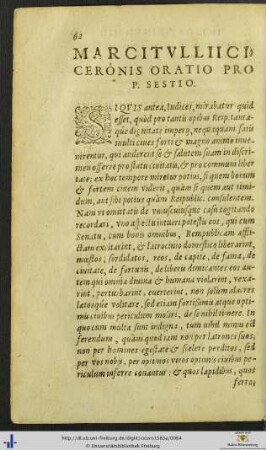 62
MARCI TVLLII CI
CERONIS ORATIO PRO
P. SESTIO.
SI QVIS antea, Iudices, mirabatur quid
esset, quòd pro tantis opibus Reip. tanta-
que dignitate imperij, nequaquam satis
multi ciues forti & magno animo inue-
nirentur, qui auderent se & salutem suam in discri-
men offerre pro statu ciuitatis, & pro communi liber-
tate: ex hoc tempore miretur potius, si quem bonum
& fortem ciuem viderit, quàm si quem aut timi-
dum, aut sibi potius quàm Reipublic. consulentem.
Nam vt omittatis de vniuscuiusque casu cogitando
recordari, vno aspectu intueri potestis eos, qui cum
Senatu, cum bonis omnibus, Rempublicam affli-
ctam excitarint, & latrocinio domestico liberarint,
mœstos, sordidatos, reos, de capite, de fama, de
ciuitate, de fortunis, de liberis dimicantes: eos au-
tem qui omnia diuina & humana violarint, vexa-
rint, perturbarint, euerterint, non solùm alacres
lætosque volitare, sed etiam fortissimis atque opti-
mis ciuibus periculum moliri, de se nihil timere. In
quo cum multa sint indigna, tum nihil minus est
ferendum, quàm quod iam non per latrones suos,
non per homines egestate & scelere perditos, sed
per vos nobis, per optimos viros optimis ciuibus pe-
riculum inferre conantur: & quos lapidibus, quos
ferro,
http://dl.ub.uni-freiburg.de/diglit/cicero1581a/0064
© Universitätsbibliothek Freiburg